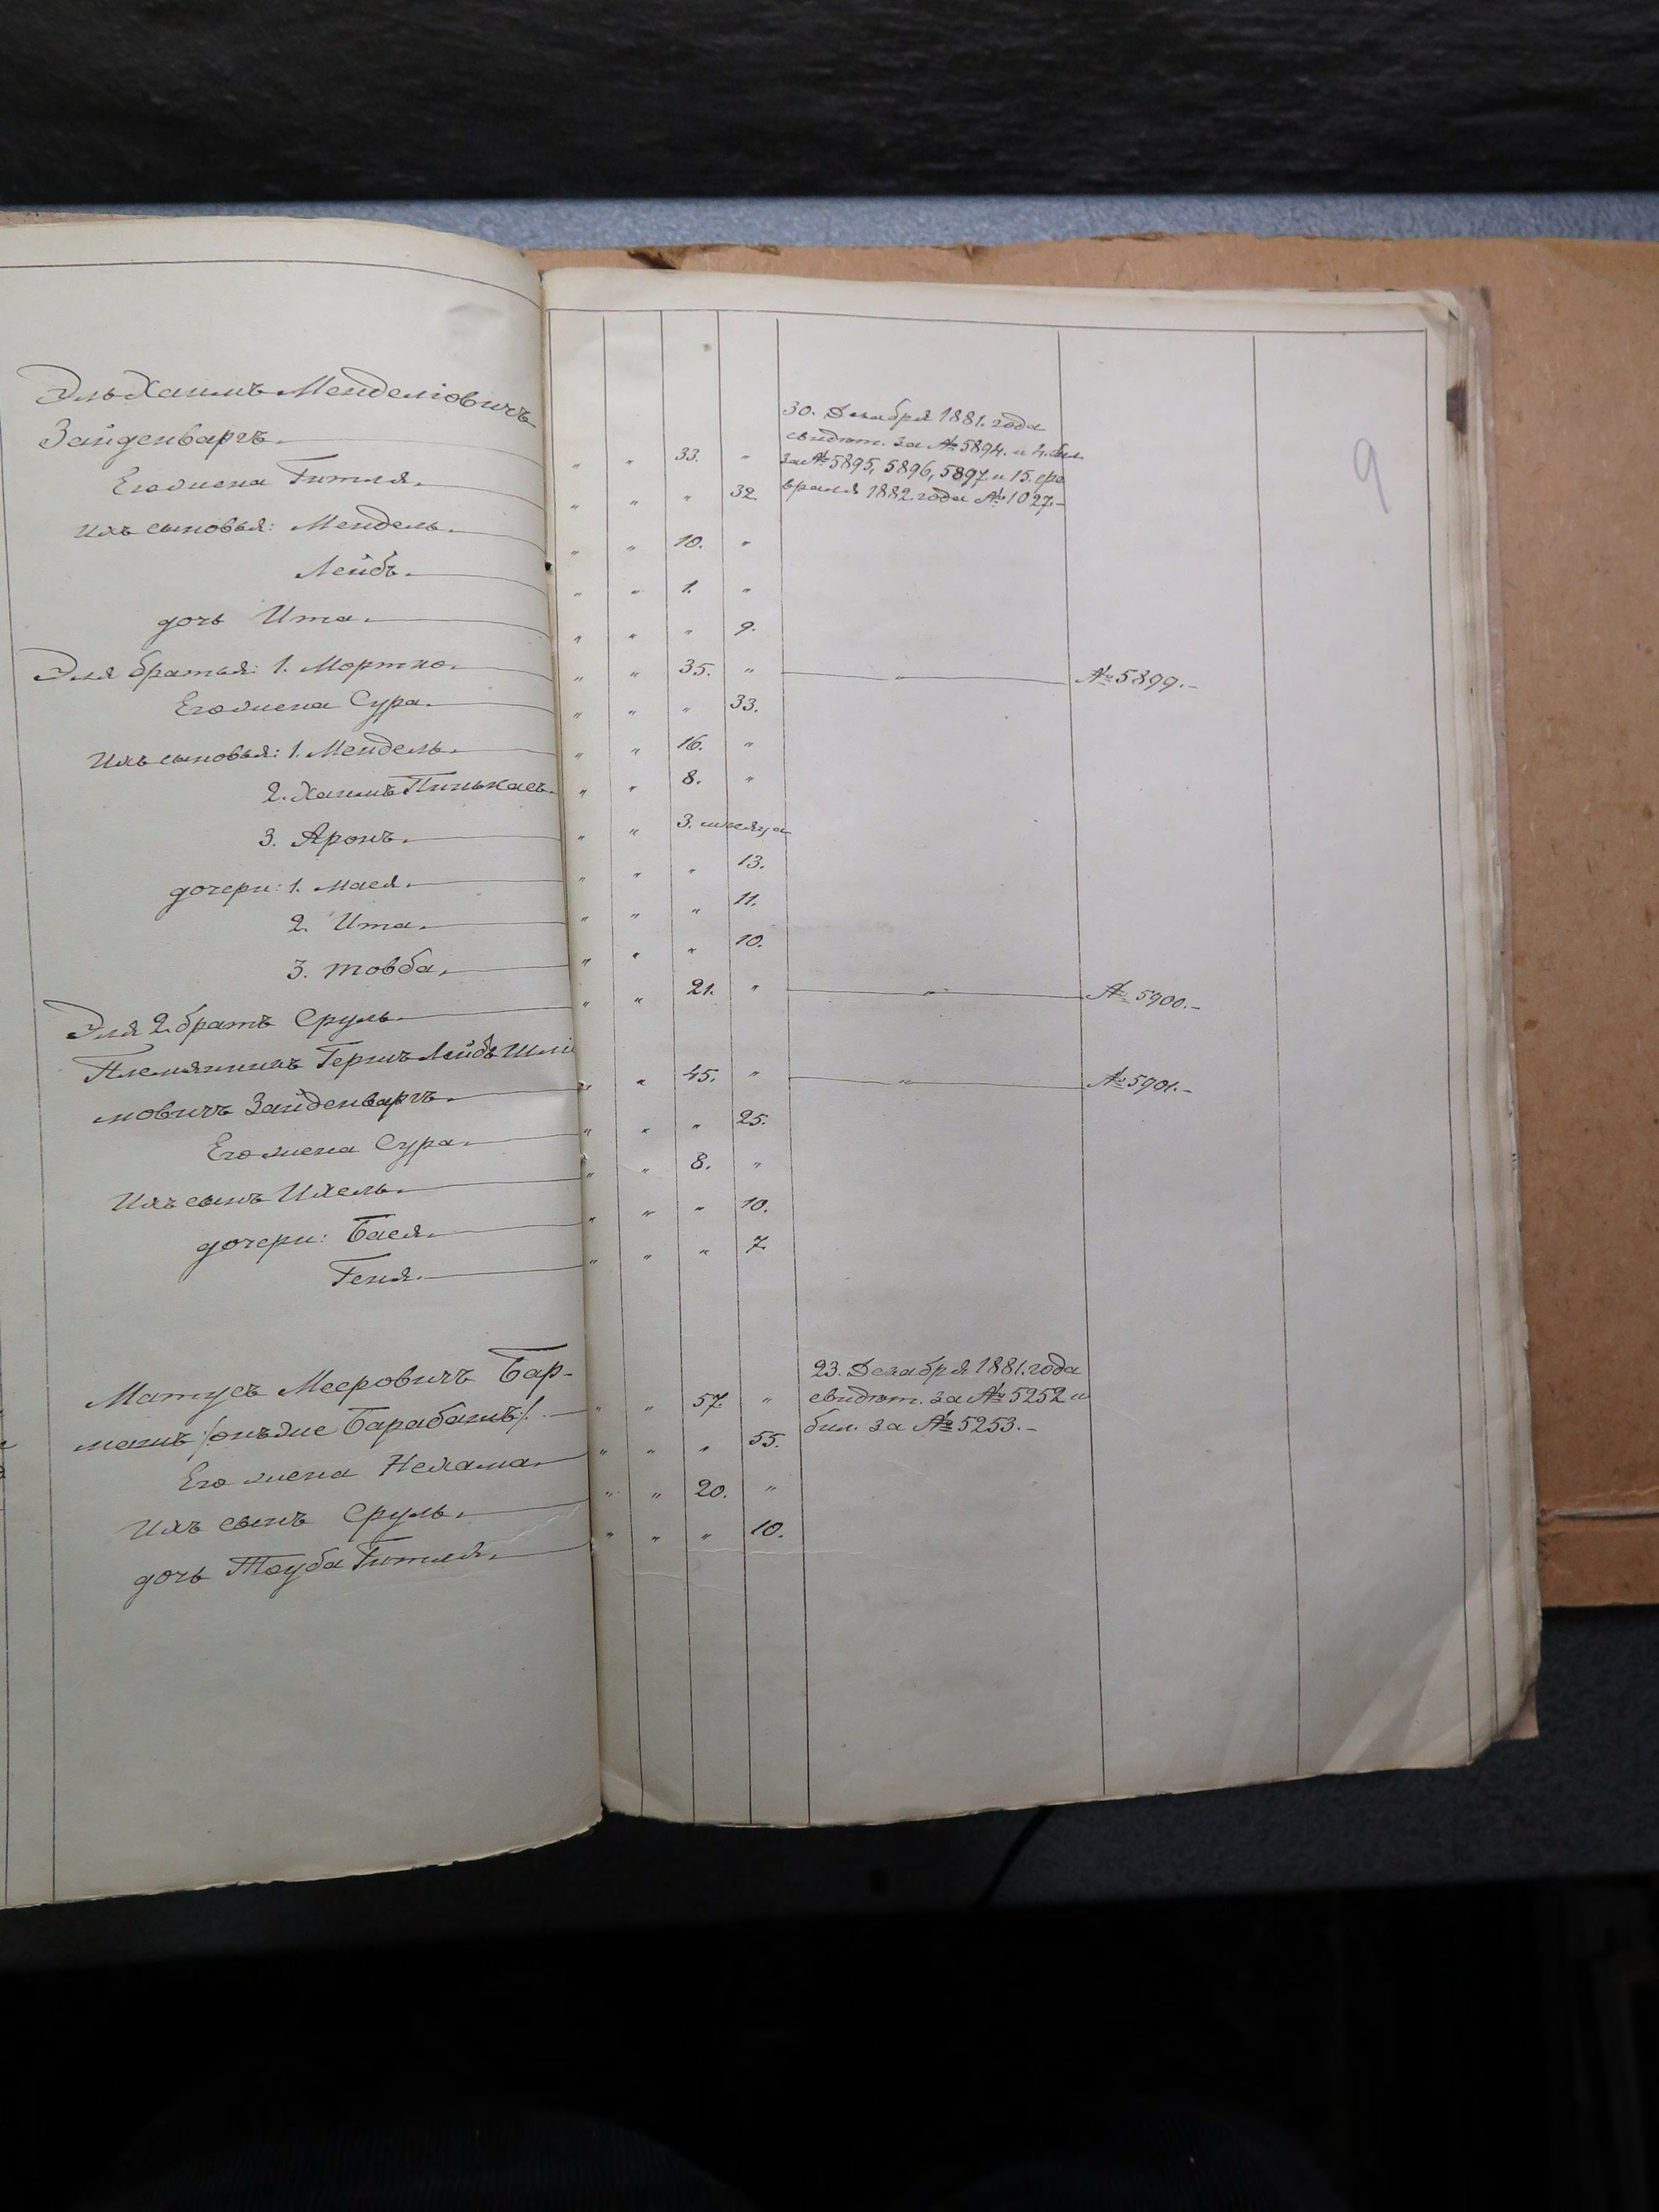 9
Эль Хаимъ Менделіовичъ
Зайденваргъ.
" " 33. "
30. Декабря 1881. года
свидѣт. за № 5894. и 4. бил.
за № 5895, 5896, 5897 и 15. фе
враля 1882 года № 1027.-
Его жена Гитля.
" " " 32.
ихъ сыновья: Мендель.
" " 10. "
Лейбъ.
" " 1. "
дочь Ита.
" " " 9.
Эля братья: 1. Мортко.
" " 35. " " № 5899.-
Его жена Сура.
" " " 33.
Ихъ сыновья: 1. Мендель.
" " 16. "
2. Хаимъ Пинькасъ.
" " 8. "
3. Аронъ.
" " 3. мѣсяца
дочери: 1. Мася.
" " " 13.
2. Ита.
" " " 11.
3. товба.
" " " 10.
Эля 2. братъ Сруль.
" " 21. " " № 5900.-
Племянникъ Гершъ Лейбъ Шлі
мовичъ Зайденваргъ.
" " 45. " " № 5901.-
Его жена Сура.
" " " 25.
Ихъ сынъ Ихель.
" " 8. "
дочери: Бася.
" " " 10.
Геня.
" " " 7.
Матусъ Мееровичъ Бар-
манъ /:онъ же Барабашъ:/.
" " 57. "
23. Декабря 1881. года
свидѣт. за № 5252 и
бил. за № 5253.-
Его жена Нехама.
" " " 55.
Ихъ сынъ Сруль.
" " 20. "
дочь Тауба Гитля.
" " " 10.